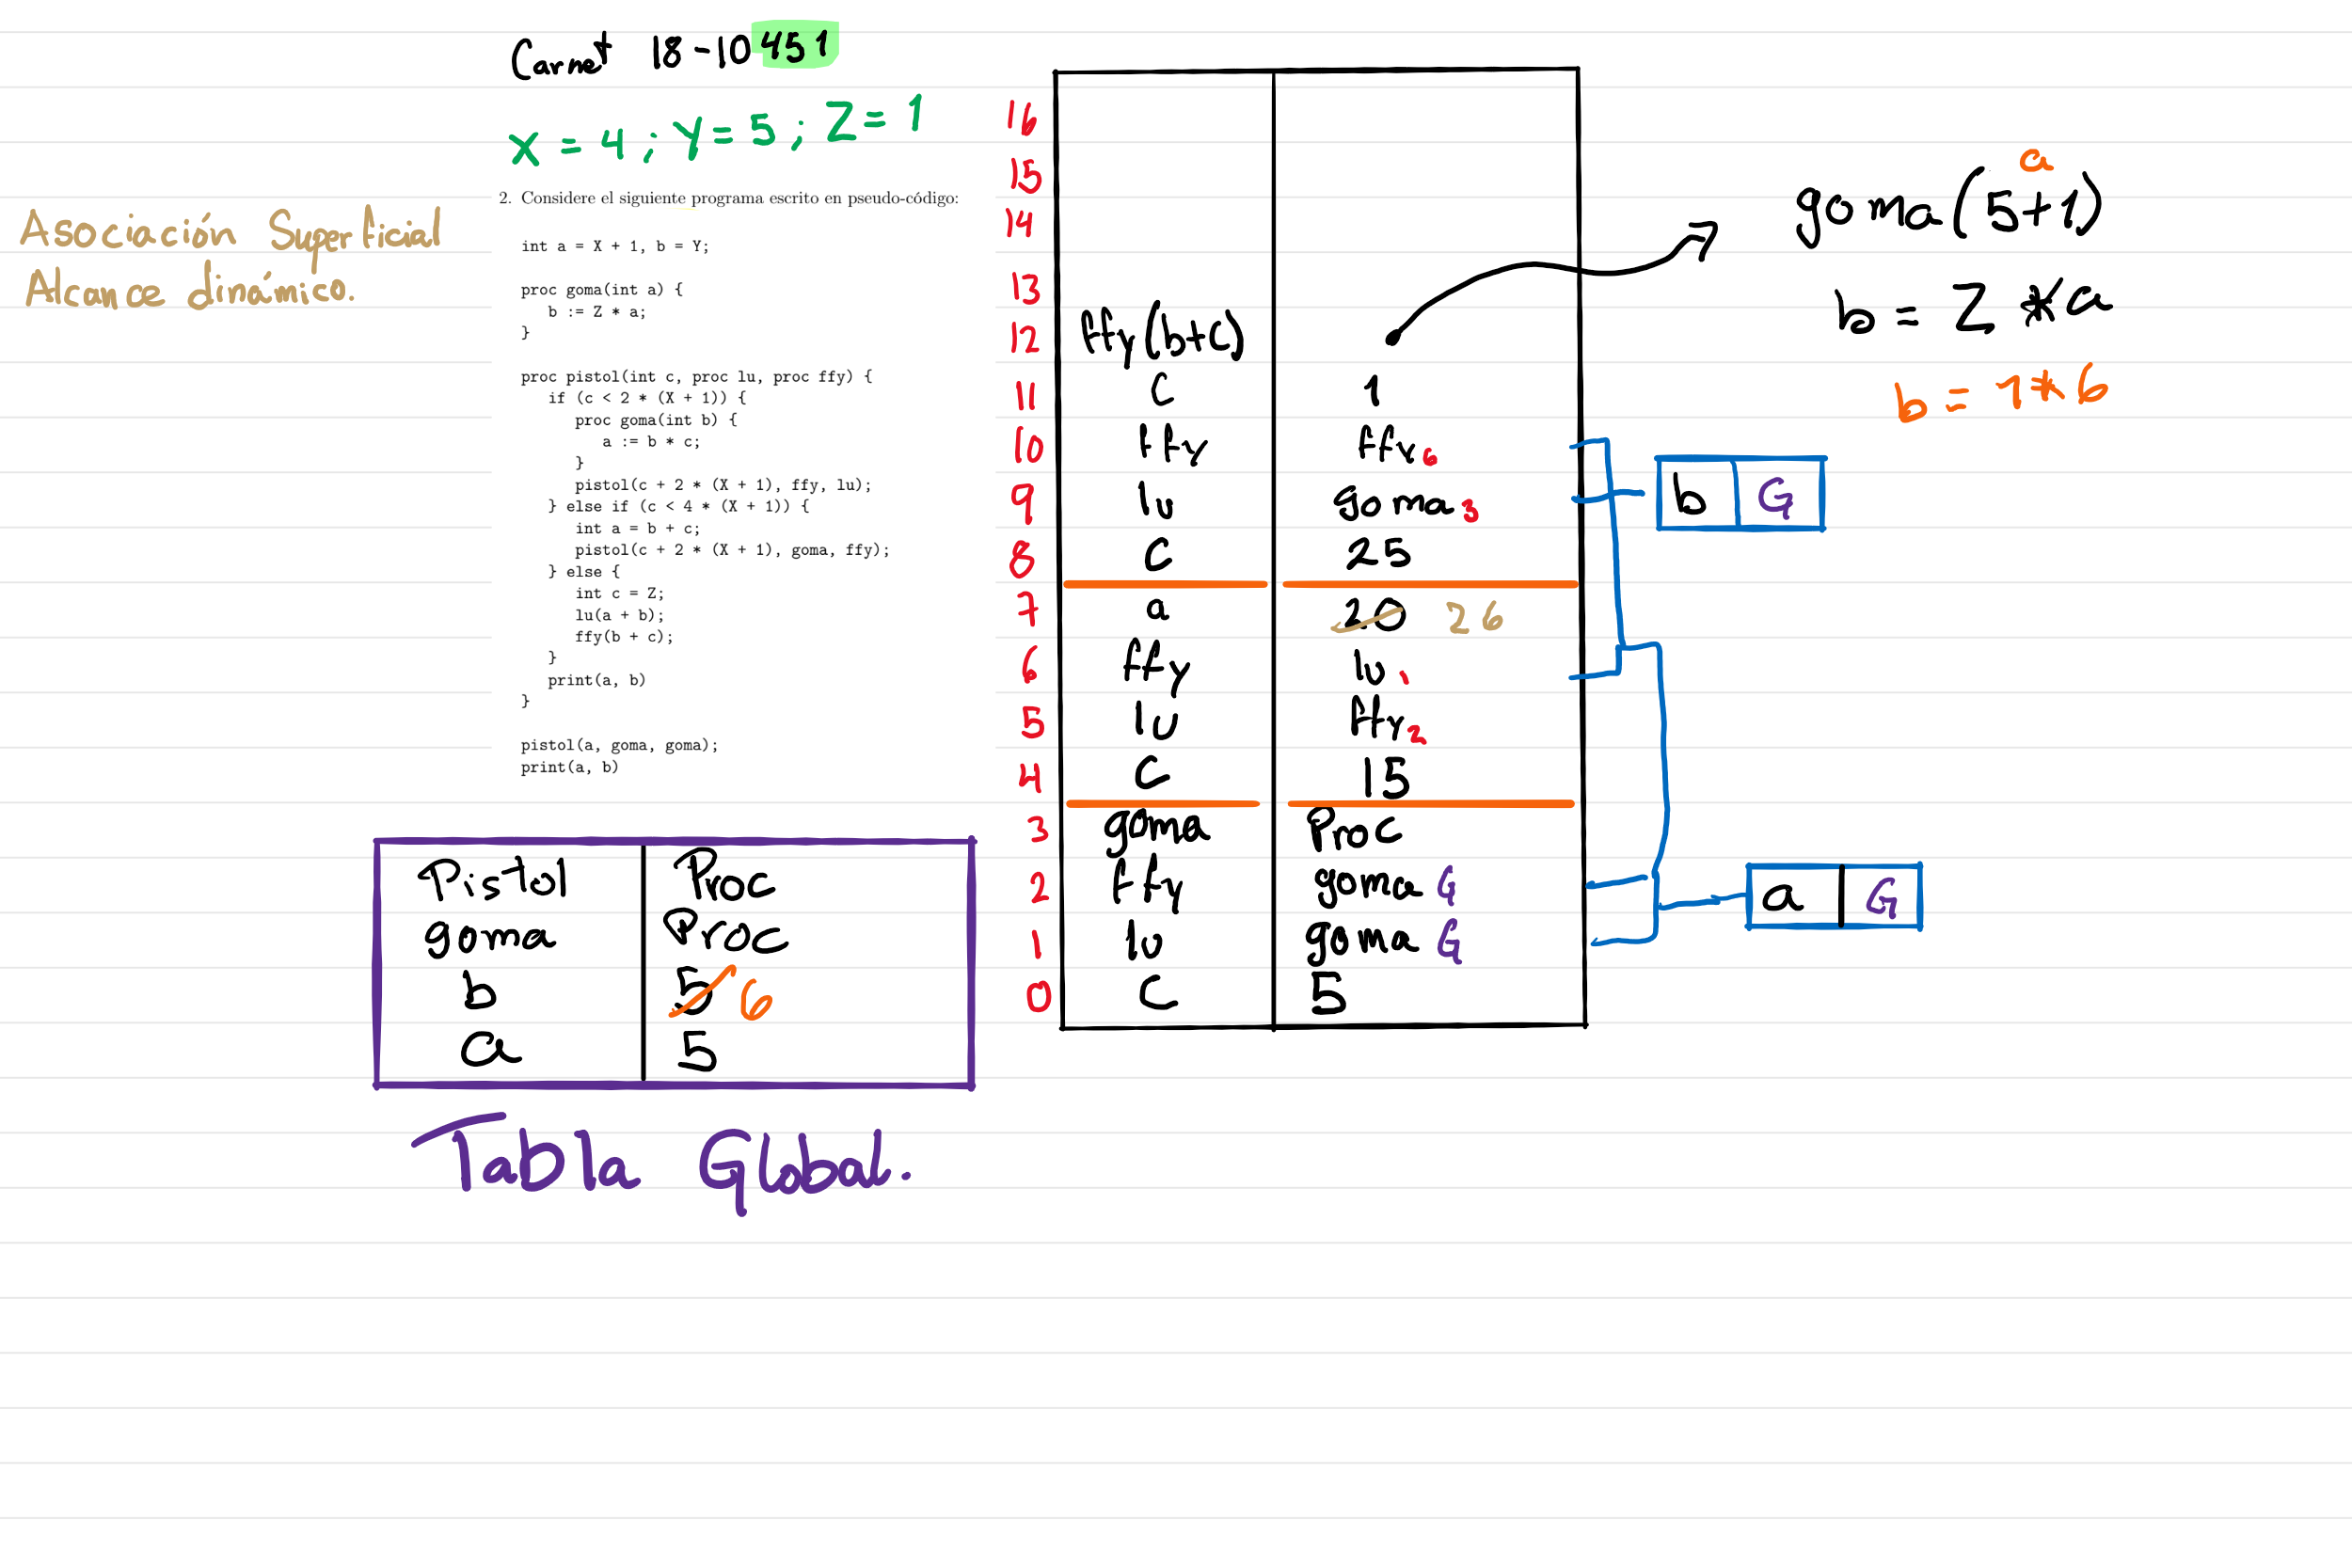 Carnet 18-10451
X = 4 ; Y = 5 ; Z = 1
Asociación Superficial
Alcance dinámico.
2. Considere el siguiente programa escrito en pseudo-código:
int a = X + 1, b = Y;
proc goma(int a) {
b := Z * a;
}
proc pistol(int c, proc lu, proc ffy) {
if (c < 2 * (X + 1)) {
proc goma(int b) {
a := b * c;
}
pistol(c + 2 * (X + 1), ffy, lu);
} else if (c < 4 * (X + 1)) {
int a = b + c;
pistol(c + 2 * (X + 1), goma, ffy);
} else {
int c = Z;
lu(a + b);
ffy(b + c);
}
print(a, b)
}
pistol(a, goma, goma);
print(a, b)
Pistol Proc
goma Proc
b 5 6
a 5
Tabla Global.
16
15
14
13
12 ffy(b+c)
11 c 1
10 ffy ffy 6
9 lu goma 3
8 c 25
7 a 20 26
6 ffy lu 1
5 lu ffy 2
4 c 15
3 goma Proc
2 ffy goma G
1 lu goma G
0 c 5
a
goma(5+1)
b = Z * a
b = 1 * 6
b G
a G